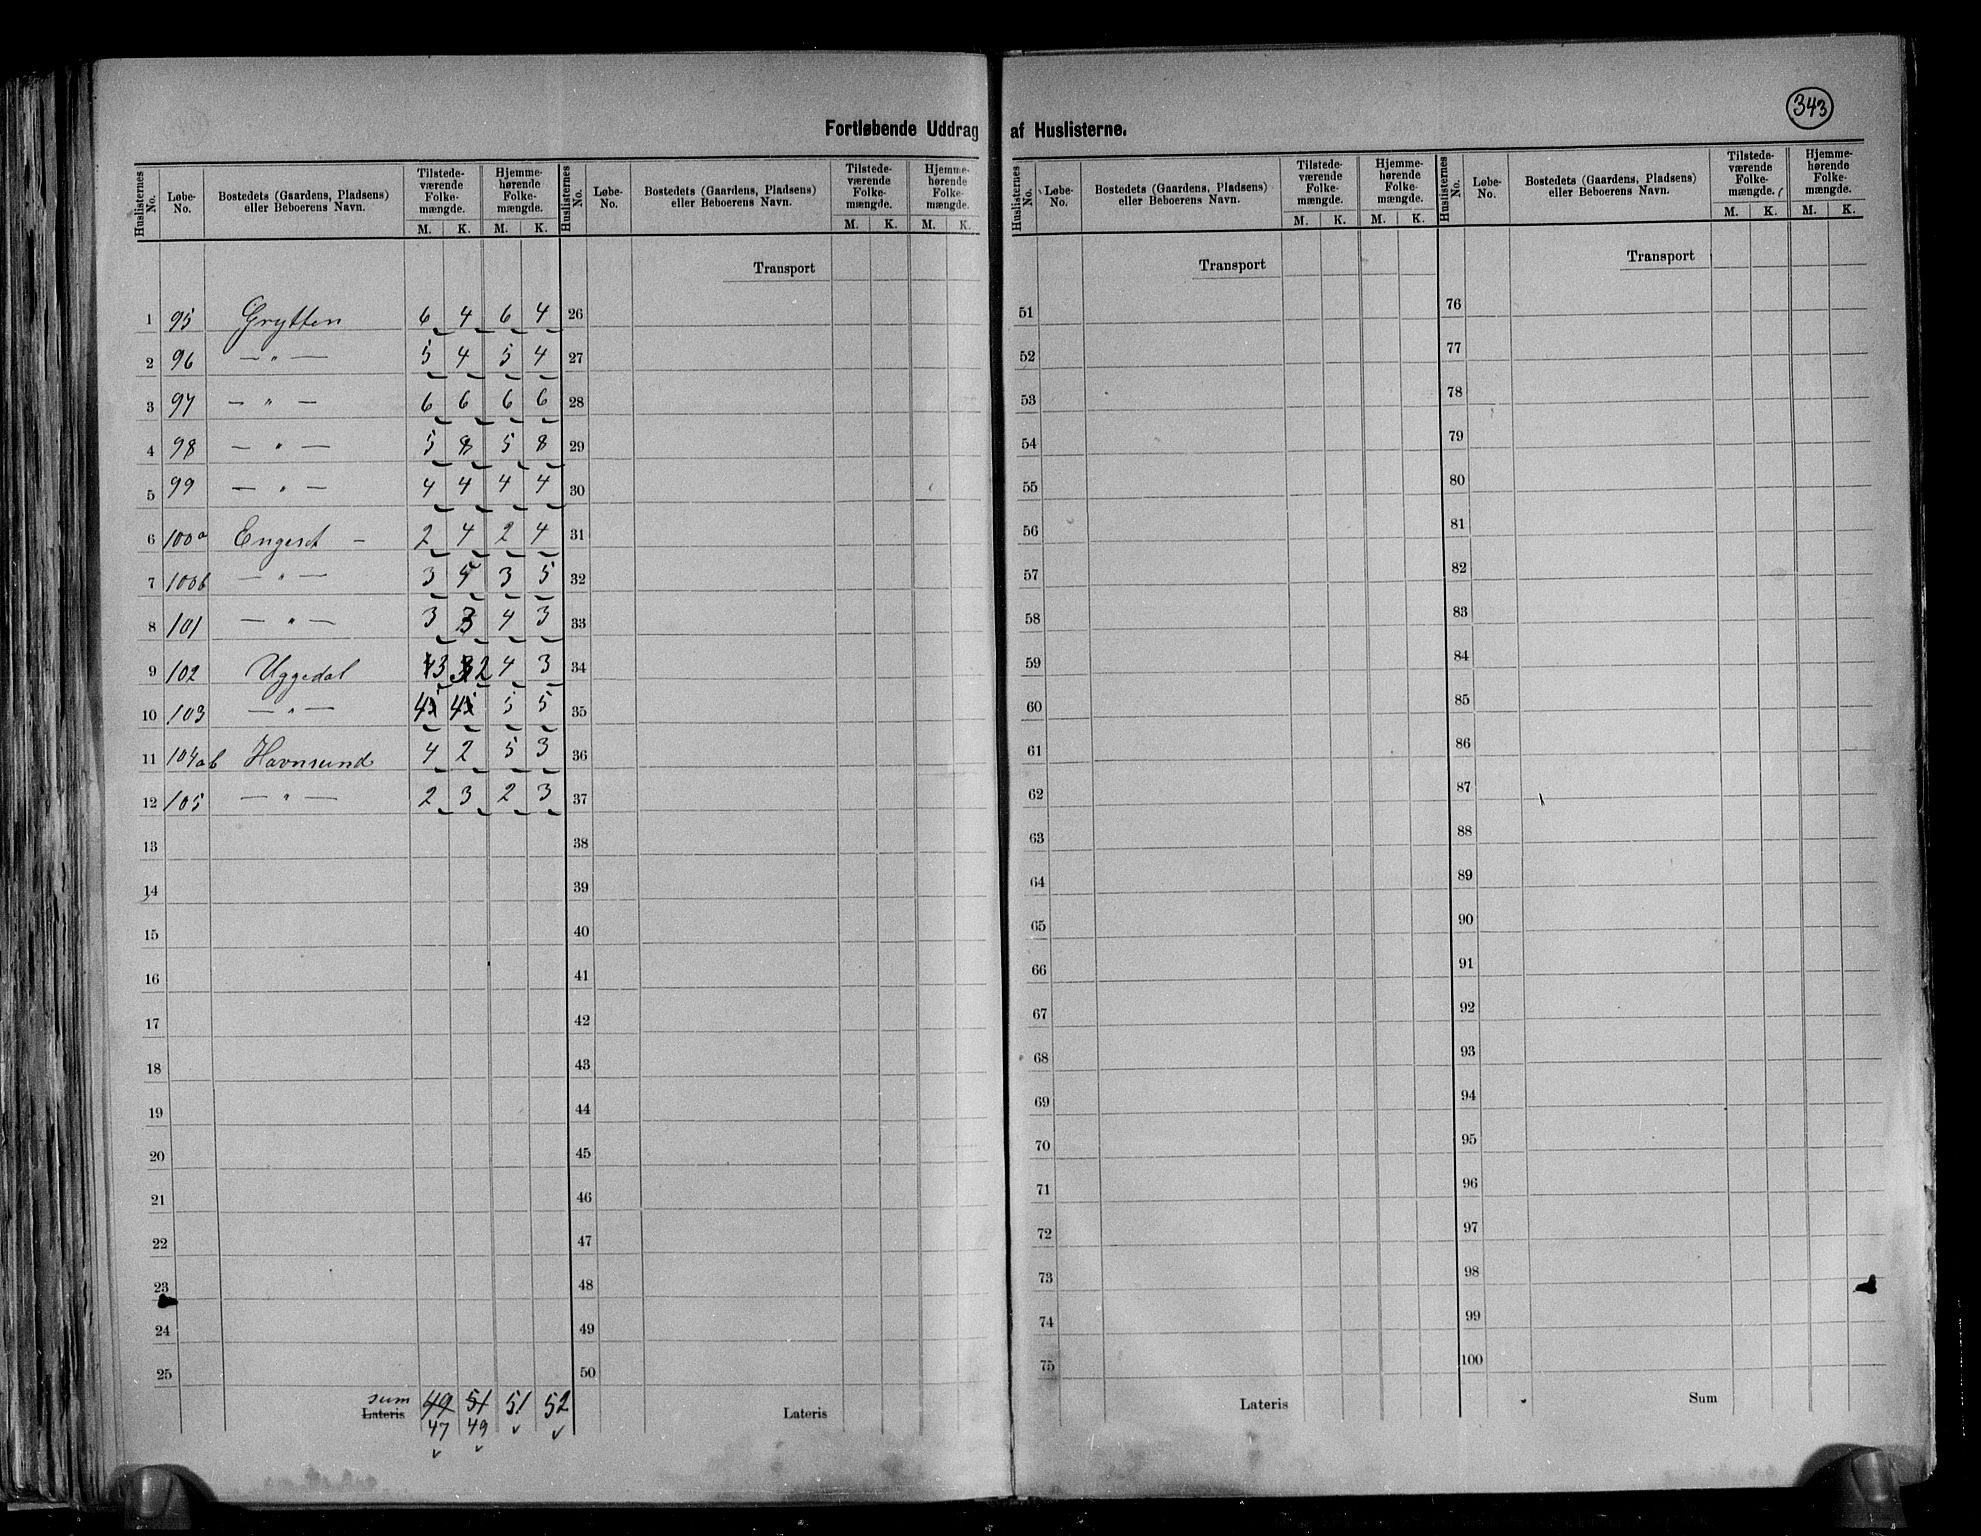 343
Fortløbende Uddrag af Huslisterne.
Huslisternes No. | Løbe-No. | Bostedets (Gaardens, Pladsens) eller Beboerens Navn. | Tilstedeværende Folkemængde. M. K. | Hjemmehørende Folkemængde. M. K.
Huslisternes No. | Løbe-No. | Bostedets (Gaardens, Pladsens) eller Beboerens Navn. | Tilstedeværende Folkemængde. M. K. | Hjemmehørende Folkemængde. M. K.
Transport
1 95 Grytten 6 4 6 4
2 96 — „ — 5 4 5 4
3 97 — „ — 6 6 6 6
4 98 — „ — 5 8 5 8
5 99 — „ — 4 4 4 4
6 100a Engeset — 2 4 2 4
7 100b — „ — 3 5 3 5
8 101 — „ — 3 3 4 3
9 102 Uggedal 3 2 4 3
10 103 — „ — 4 4 5 5
11 104ab Havnsund 4 2 5 3
12 105 — „ — 2 3 2 3
13
14
15
16
17
18
19
20
21
22
23
24
25
sum
Lateris 49 51 51 52
47 49
26
27
28
29
30
31
32
33
34
35
36
37
38
39
40
41
42
43
44
45
46
47
48
49
50
Lateris
Huslisternes No. | Løbe-No. | Bostedets (Gaardens, Pladsens) eller Beboerens Navn. | Tilstedeværende Folkemængde. M. K. | Hjemmehørende Folkemængde. M. K.
Transport
51
52
53
54
55
56
57
58
59
60
61
62
63
64
65
66
67
68
69
70
71
72
73
74
75
Lateris
Huslisternes No. | Løbe-No. | Bostedets (Gaardens, Pladsens) eller Beboerens Navn. | Tilstedeværende Folkemængde. M. K. | Hjemmehørende Folkemængde. M. K.
Transport
76
77
78
79
80
81
82
83
84
85
86
87
88
89
90
91
92
93
94
95
96
97
98
99
100
Sum